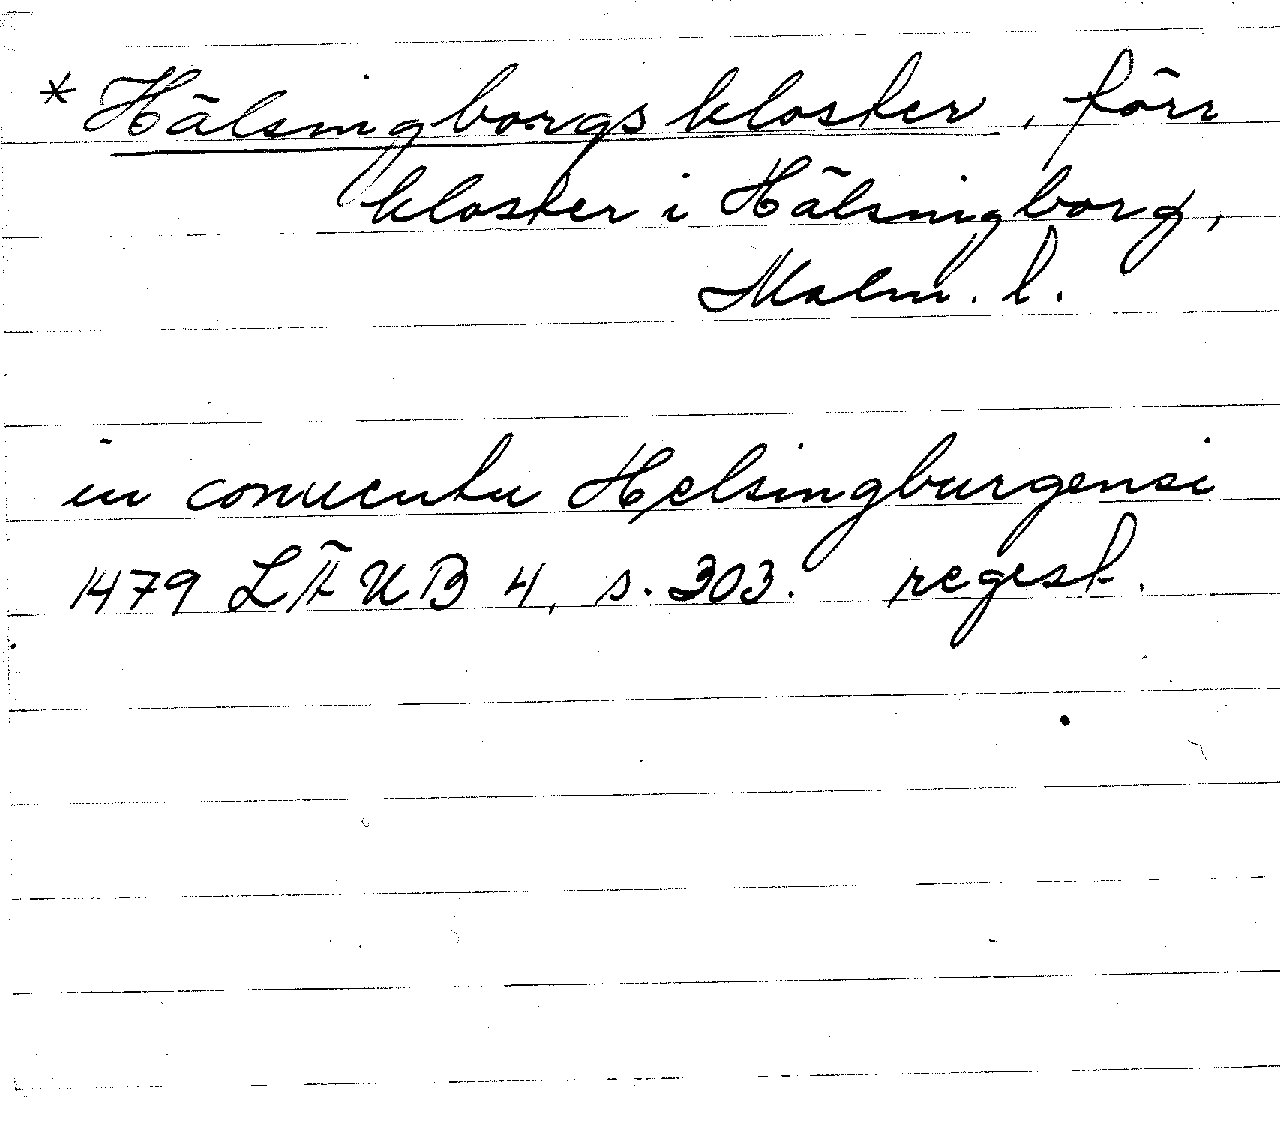 * Hälsingborgs kloster, förr
kloster i Hälsingborg,
Malm. l.
in conuentu Helsingburgensi
1479 LÄUB 4, s. 303. regest.